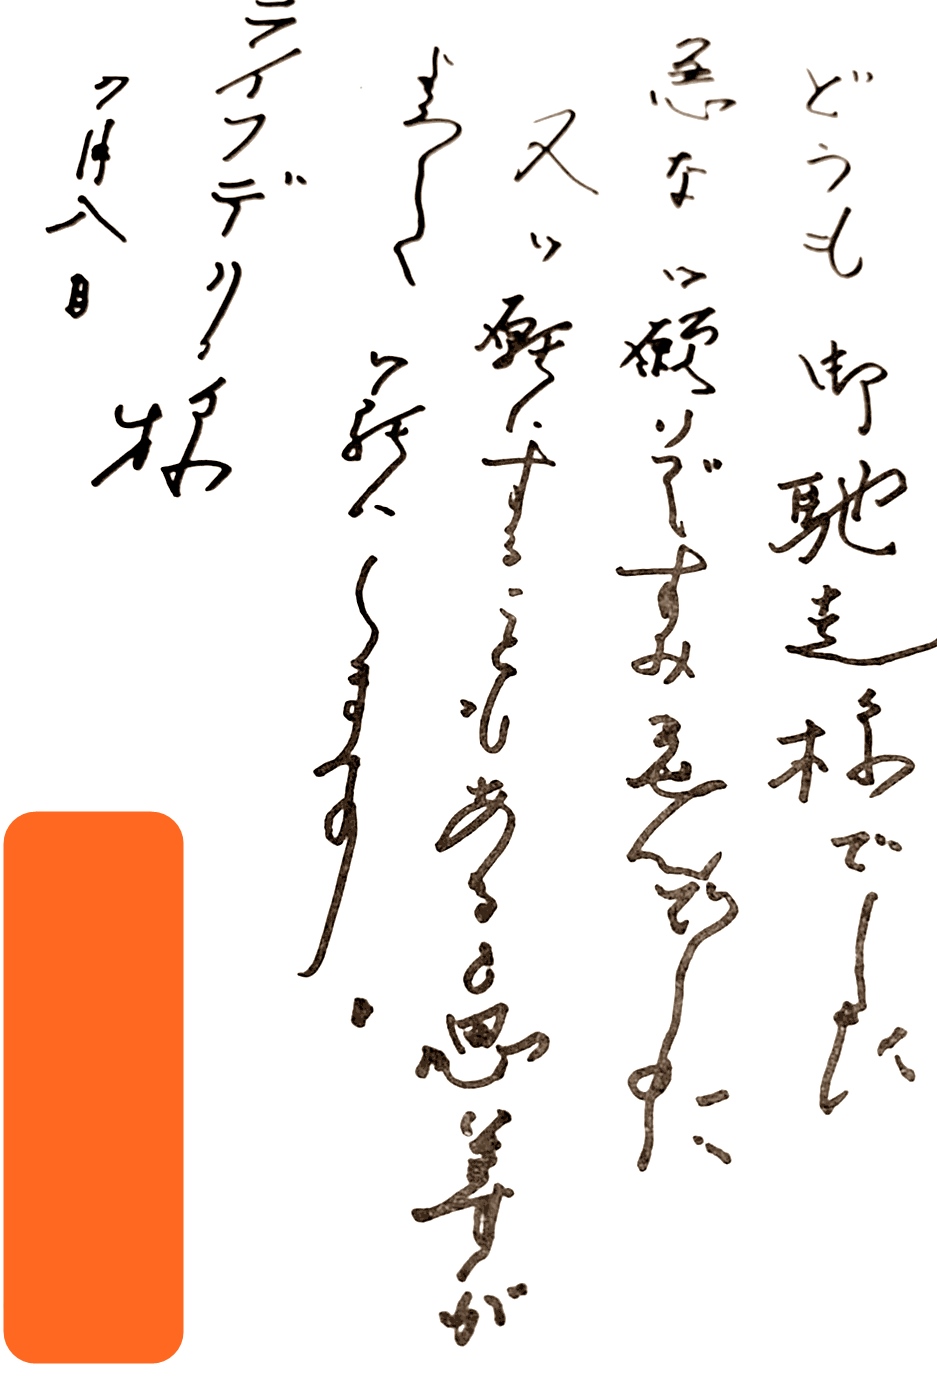 どうも御馳走様でした
急なお願いですみませんでした
又お願いすることもあると思いますが
よろしくお願いします。
ライフデリ様
7月八日